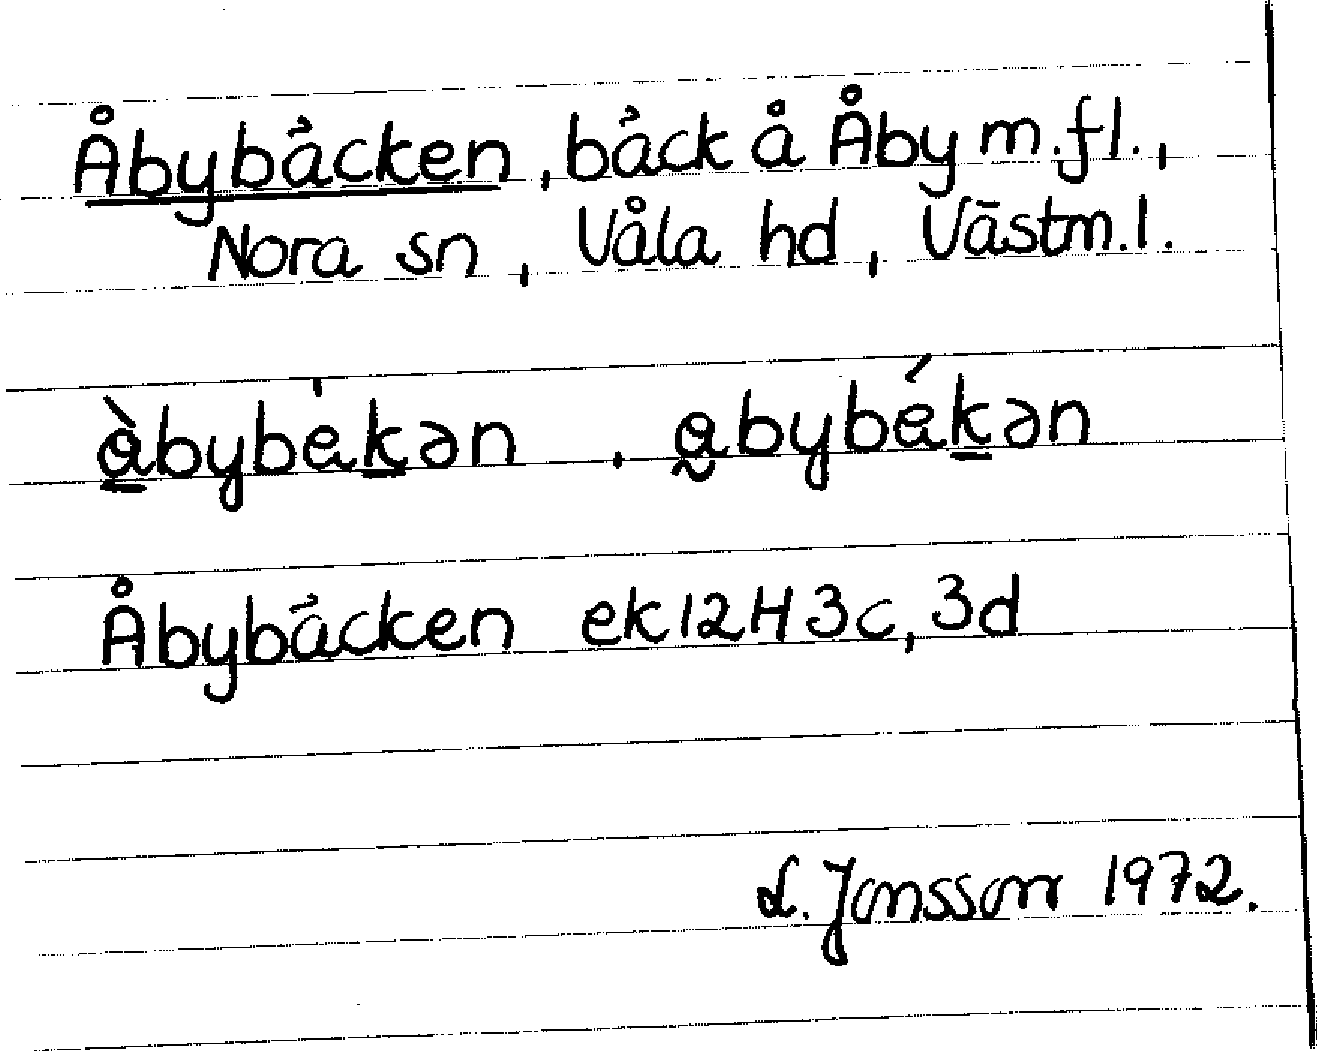 Åbybäcken, bäck å Åby m.fl.,
Nora sn, Våla hd, Västm.l.
å̀bybèkən . åbybékən
Åbybäcken ek12H3c,3d
L. Jonsson 1972.